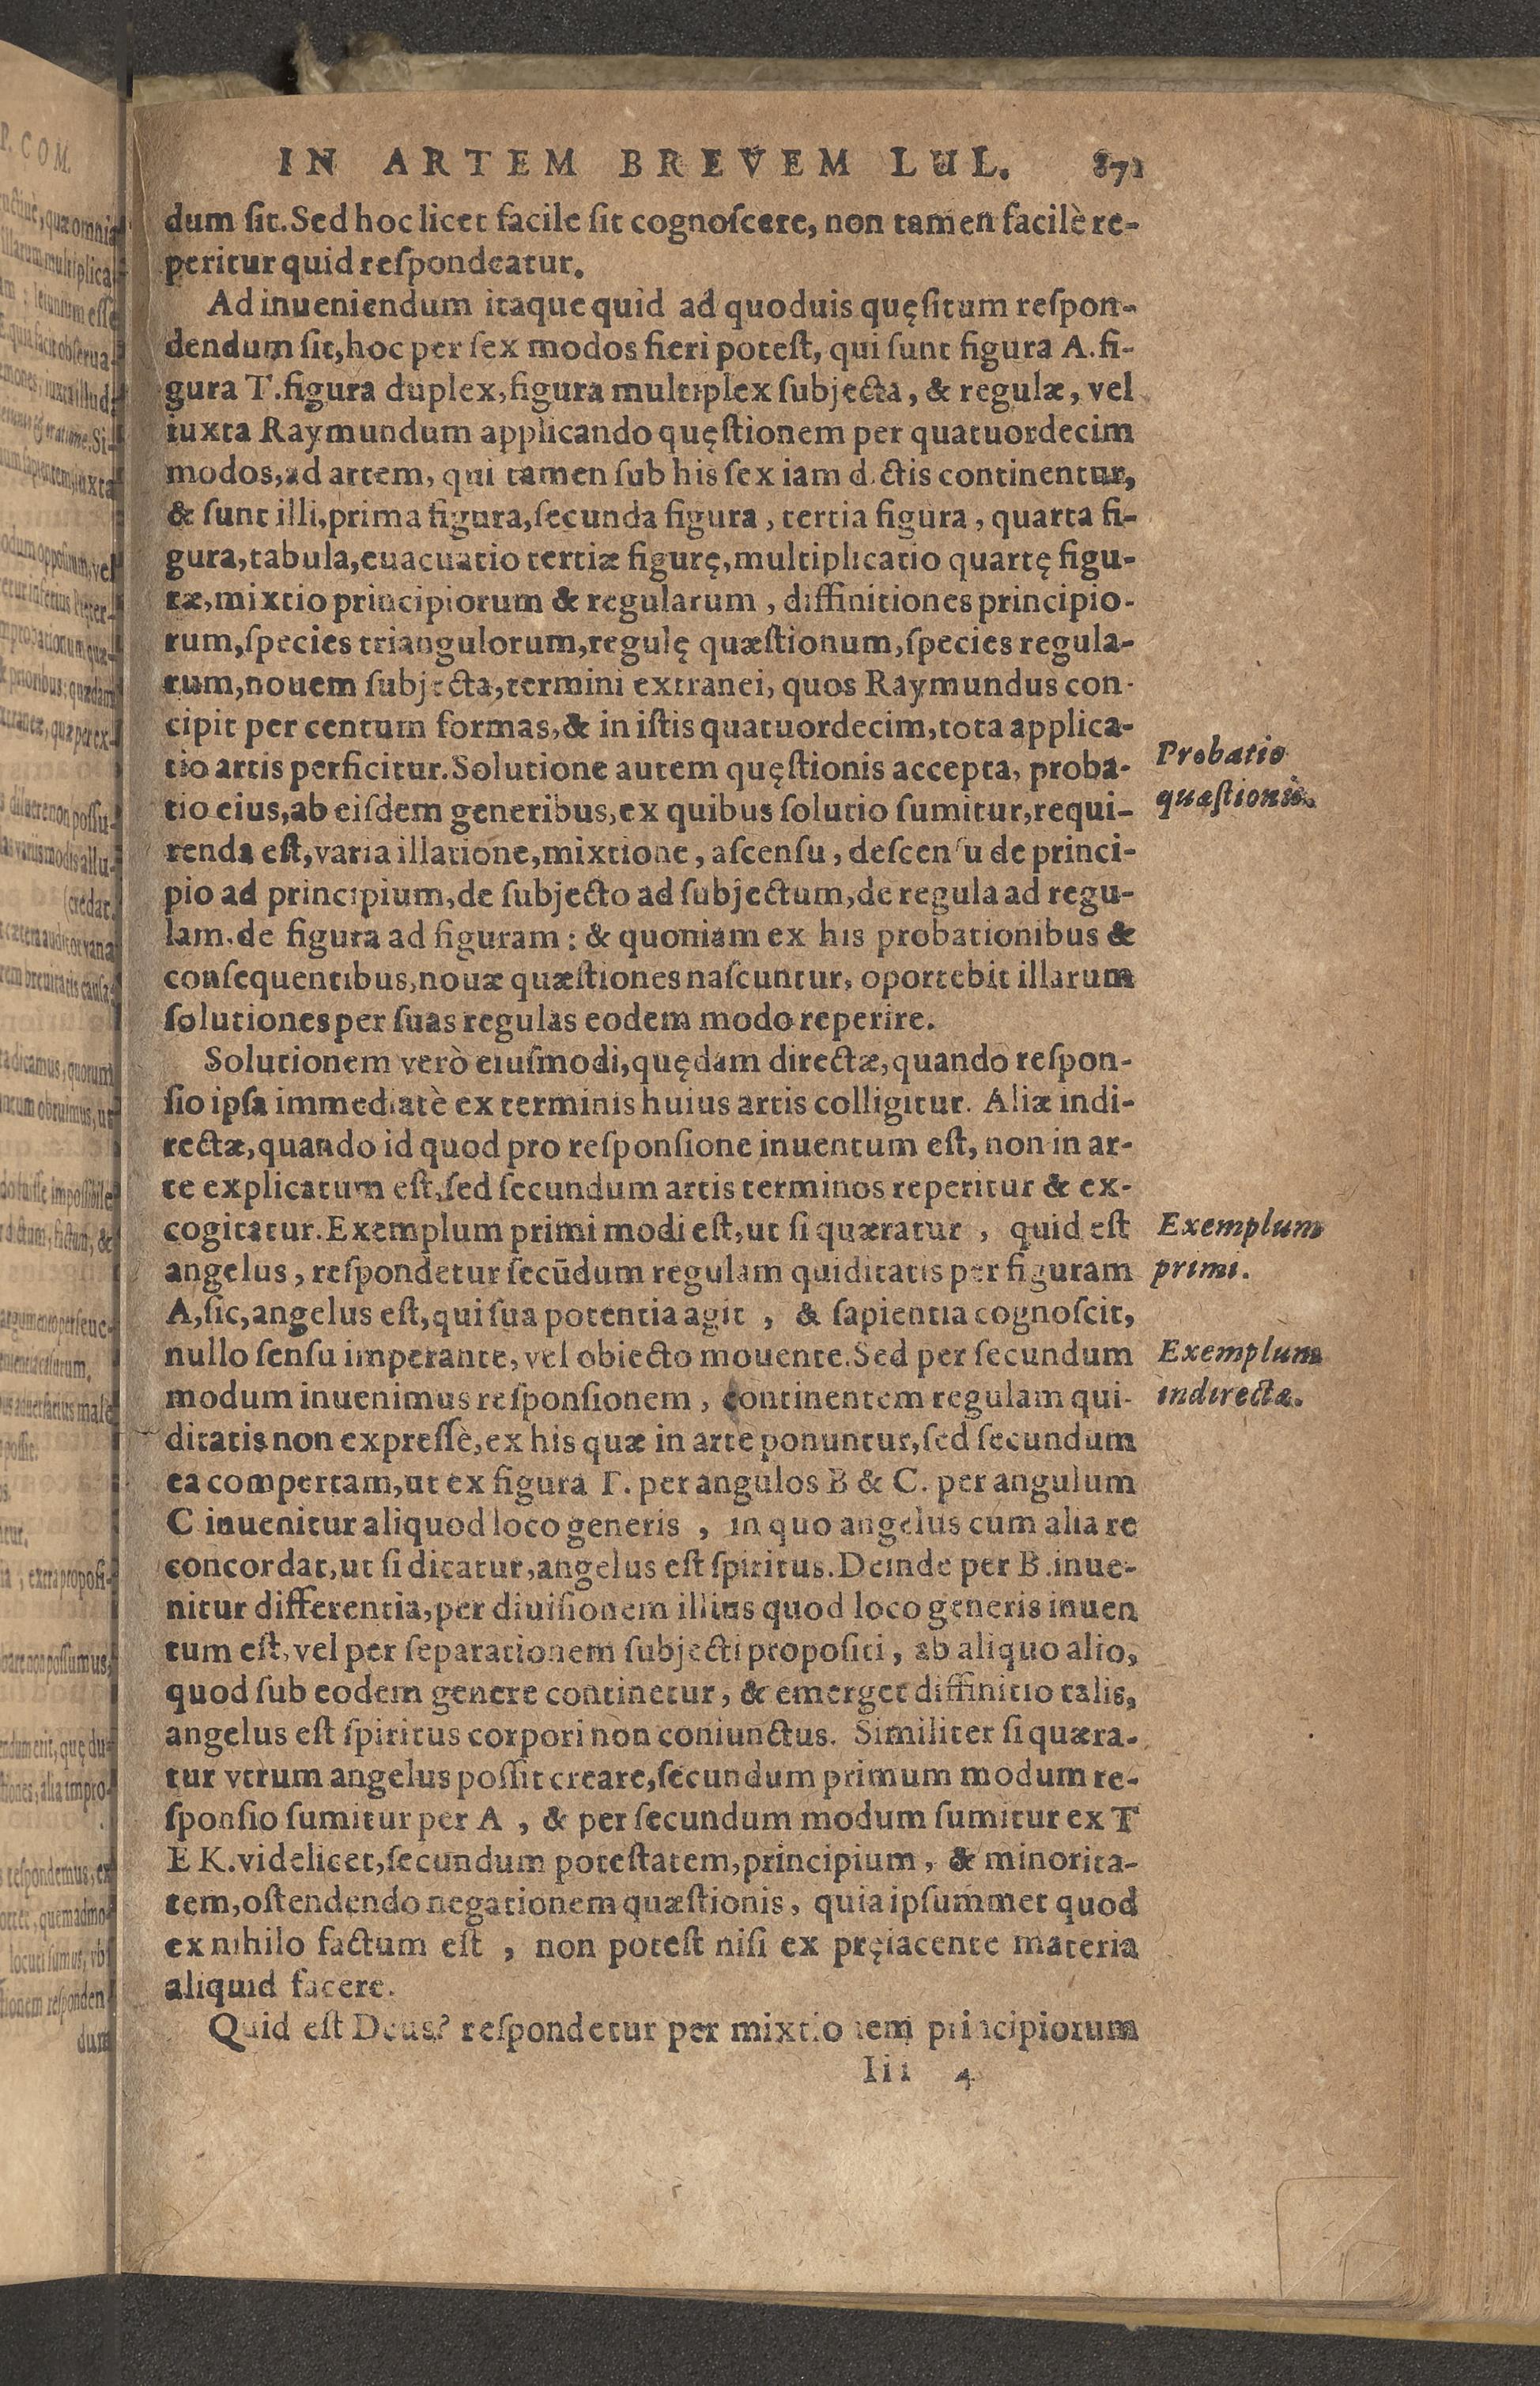 IN ARTEM BREVEM LUL. 871
dum ſit. Sed hoc licet facile ſit cognoſcere, non tamen facilè re-
peritur quid reſpondeatur.
Ad inueniendum itaque quid ad quoduis quęſitum reſpon-
dendum ſit, hoc per ſex modos fieri poteſt, qui ſunt figura A. fi-
gura T. figura duplex, figura multiplex ſubjecta, & regulæ, vel
iuxta Raymundum applicando quęſtionem per quatuordecim
modos, ad artem, qui tamen ſub his ſex iam d.ctis continentur,
& ſunt illi, prima figura, ſecunda figura, tertia figura, quarta fi-
gura, tabula, euacuatio tertiæ figurę, multiplicatio quartę figu-
ræ, mixtio principiorum & regularum, diffinitiones principio-
rum, ſpecies triangulorum, regulę quæſtionum, ſpecies regula-
rum, nouem ſubjecta, termini extranei, quos Raymundus con-
cipit per centum formas, & in iſtis quatuordecim, tota applica-
tio artis perficitur. Solutione autem quęſtionis accepta, proba-
Probatio
tio eius, ab eiſdem generibus, ex quibus ſolutio ſumitur, requi-
quæſtionis.
renda eſt, varia illatione, mixtione, aſcenſu, deſcenſu de princi-
pio ad principium, de ſubjecto ad ſubjectum, de regula ad regu-
lam. de figura ad figuram: & quoniam ex his probationibus &
conſequentibus, nouæ quæſtiones naſcuntur, oportebit illarum
ſolutiones per ſuas regulas eodem modo reperire.
Solutionem verò eiuſmodi, quędam directæ, quando reſpon-
ſio ipſa immediatè ex terminis huius artis colligitur. Aliæ indi-
rectæ, quando id quod pro reſponſione inuentum eſt, non in ar-
te explicatum eſt, ſed ſecundum artis terminos reperitur & ex-
cogitatur. Exemplum primi modi eſt, ut ſi quæratur, quid eſt
Exemplum
angelus, reſpondetur ſecūdum regulam quiditatis per figuram
primi.
A, ſic, angelus eſt, qui ſua potentia agit, & ſapientia cognoſcit,
nullo ſenſu imperante, vel obiecto mouente. Sed per ſecundum
Exemplum
modum inuenimus reſponſionem, continentem regulam qui-
indirectæ.
ditatis non expreſſè, ex his quæ in arte ponuntur, ſed ſecundum
ea compertam, ut ex figura T. per angulos B & C. per angulum
C inuenitur aliquod loco generis, in quo angelus cum alia re
concordat, ut ſi dicatur, angelus eſt ſpiritus. Deinde per B. inue-
nitur differentia, per diuiſionem illius quod loco generis inuen
tum eſt, vel per ſeparationem ſubjecti propoſiti, ab aliquo alio,
quod ſub eodem genere continetur, & emerget diffinitio talis,
angelus eſt ſpiritus corpori non coniunctus. Similiter ſi quæra-
tur vtrum angelus poſſit creare, ſecundum primum modum re-
ſponſio ſumitur per A, & per ſecundum modum ſumitur ex T
E K. videlicet, ſecundum poteſtatem, principium, & minorita-
tem, oſtendendo negationem quæſtionis, quia ipſummet quod
ex nihilo factum eſt, non poteſt niſi ex pręiacente materia
aliquid facere.
Quid eſt Deus? reſpondetur per mixtionem principiorum
Iii 4